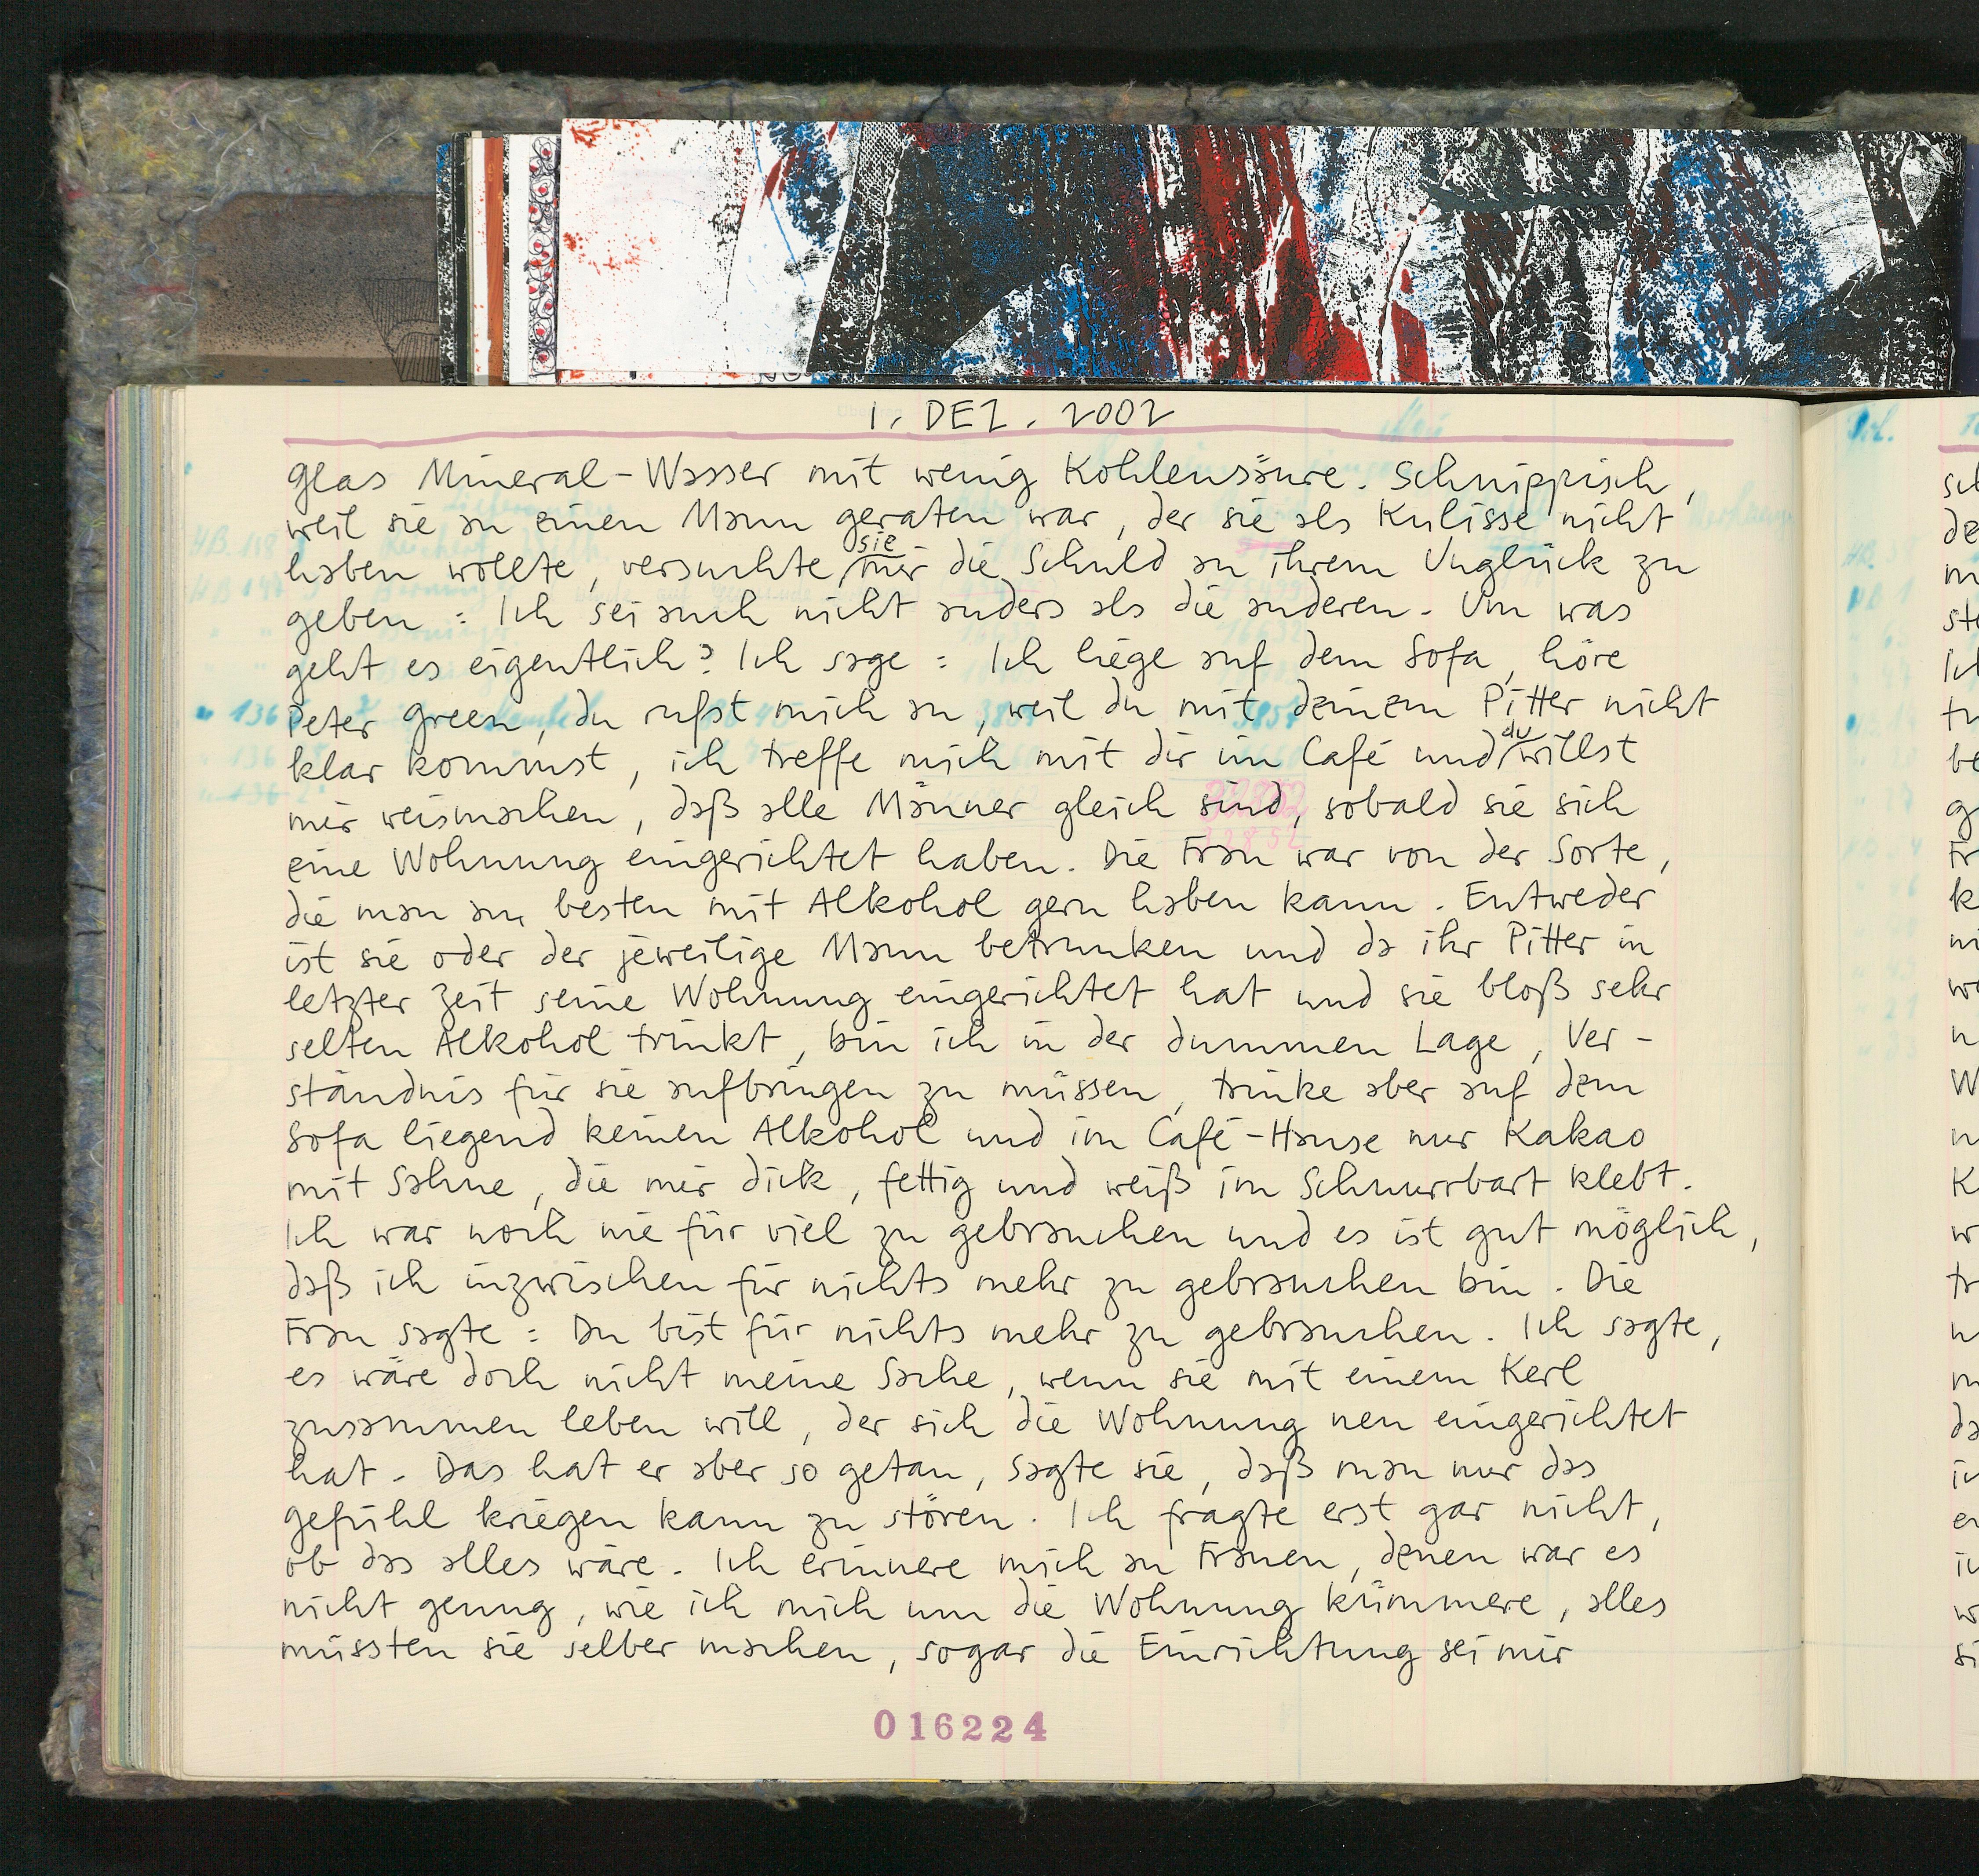 1. DEZ. 2002
Glas Mineral-Wasser mit wenig Kohlensäure. Schnippisch,
weil sie an einen Mann geraten war, der sie als Kulisse nicht
haben wollte, versuchte sie mir die Schuld an ihrem Unglück zu
geben: Ich sei auch nicht anders als die anderen. Um was
geht es eigentlich? Ich sage: Ich liege auf dem Sofa, höre
Peter Green, du rufst mich an, weil du mit deinem Pitter nicht
klar kommst, ich treffe mich mit dir im Café und du willst
mir weismachen, daß alle Männer gleich sind, sobald sie sich
eine Wohnung eingerichtet haben. Die Frau war von der Sorte,
die man am besten mit Alkohol gern haben kann. Entweder
ist sie oder der jeweilige Mann betrunken und da ihr Pitter in
letzter Zeit seine Wohnung eingerichtet hat und sie bloß sehr
selten Alkohol trinkt, bin ich in der dummen Lage, Ver-
ständnis für sie aufbringen zu müssen, trinke aber auf dem
Sofa liegend keinen Alkohol und im Café-Hause nur Kakao
mit Sahne, die mir dick, fettig und weiß im Schnurrbart klebt.
Ich war noch nie für viel zu gebrauchen und es ist gut möglich,
daß ich inzwischen für nichts mehr zu gebrauchen bin. Die
Frau sagte: Du bist für nichts mehr zu gebrauchen. Ich sagte,
es wäre doch nicht meine Sache, wenn sie mit einem Kerl
zusammen leben will, der sich die Wohnung neu eingerichtet
hat. Das hat er aber so getan, sagte sie, daß man nur das
Gefühl kriegen kann zu stören. Ich fragte erst gar nicht,
ob das alles wäre. Ich erinnere mich an Frauen, denen war es
nicht genug, wie ich mich um die Wohnung kümmere, alles
müssten sie selber machen, sogar die Einrichtung sei mir
016224